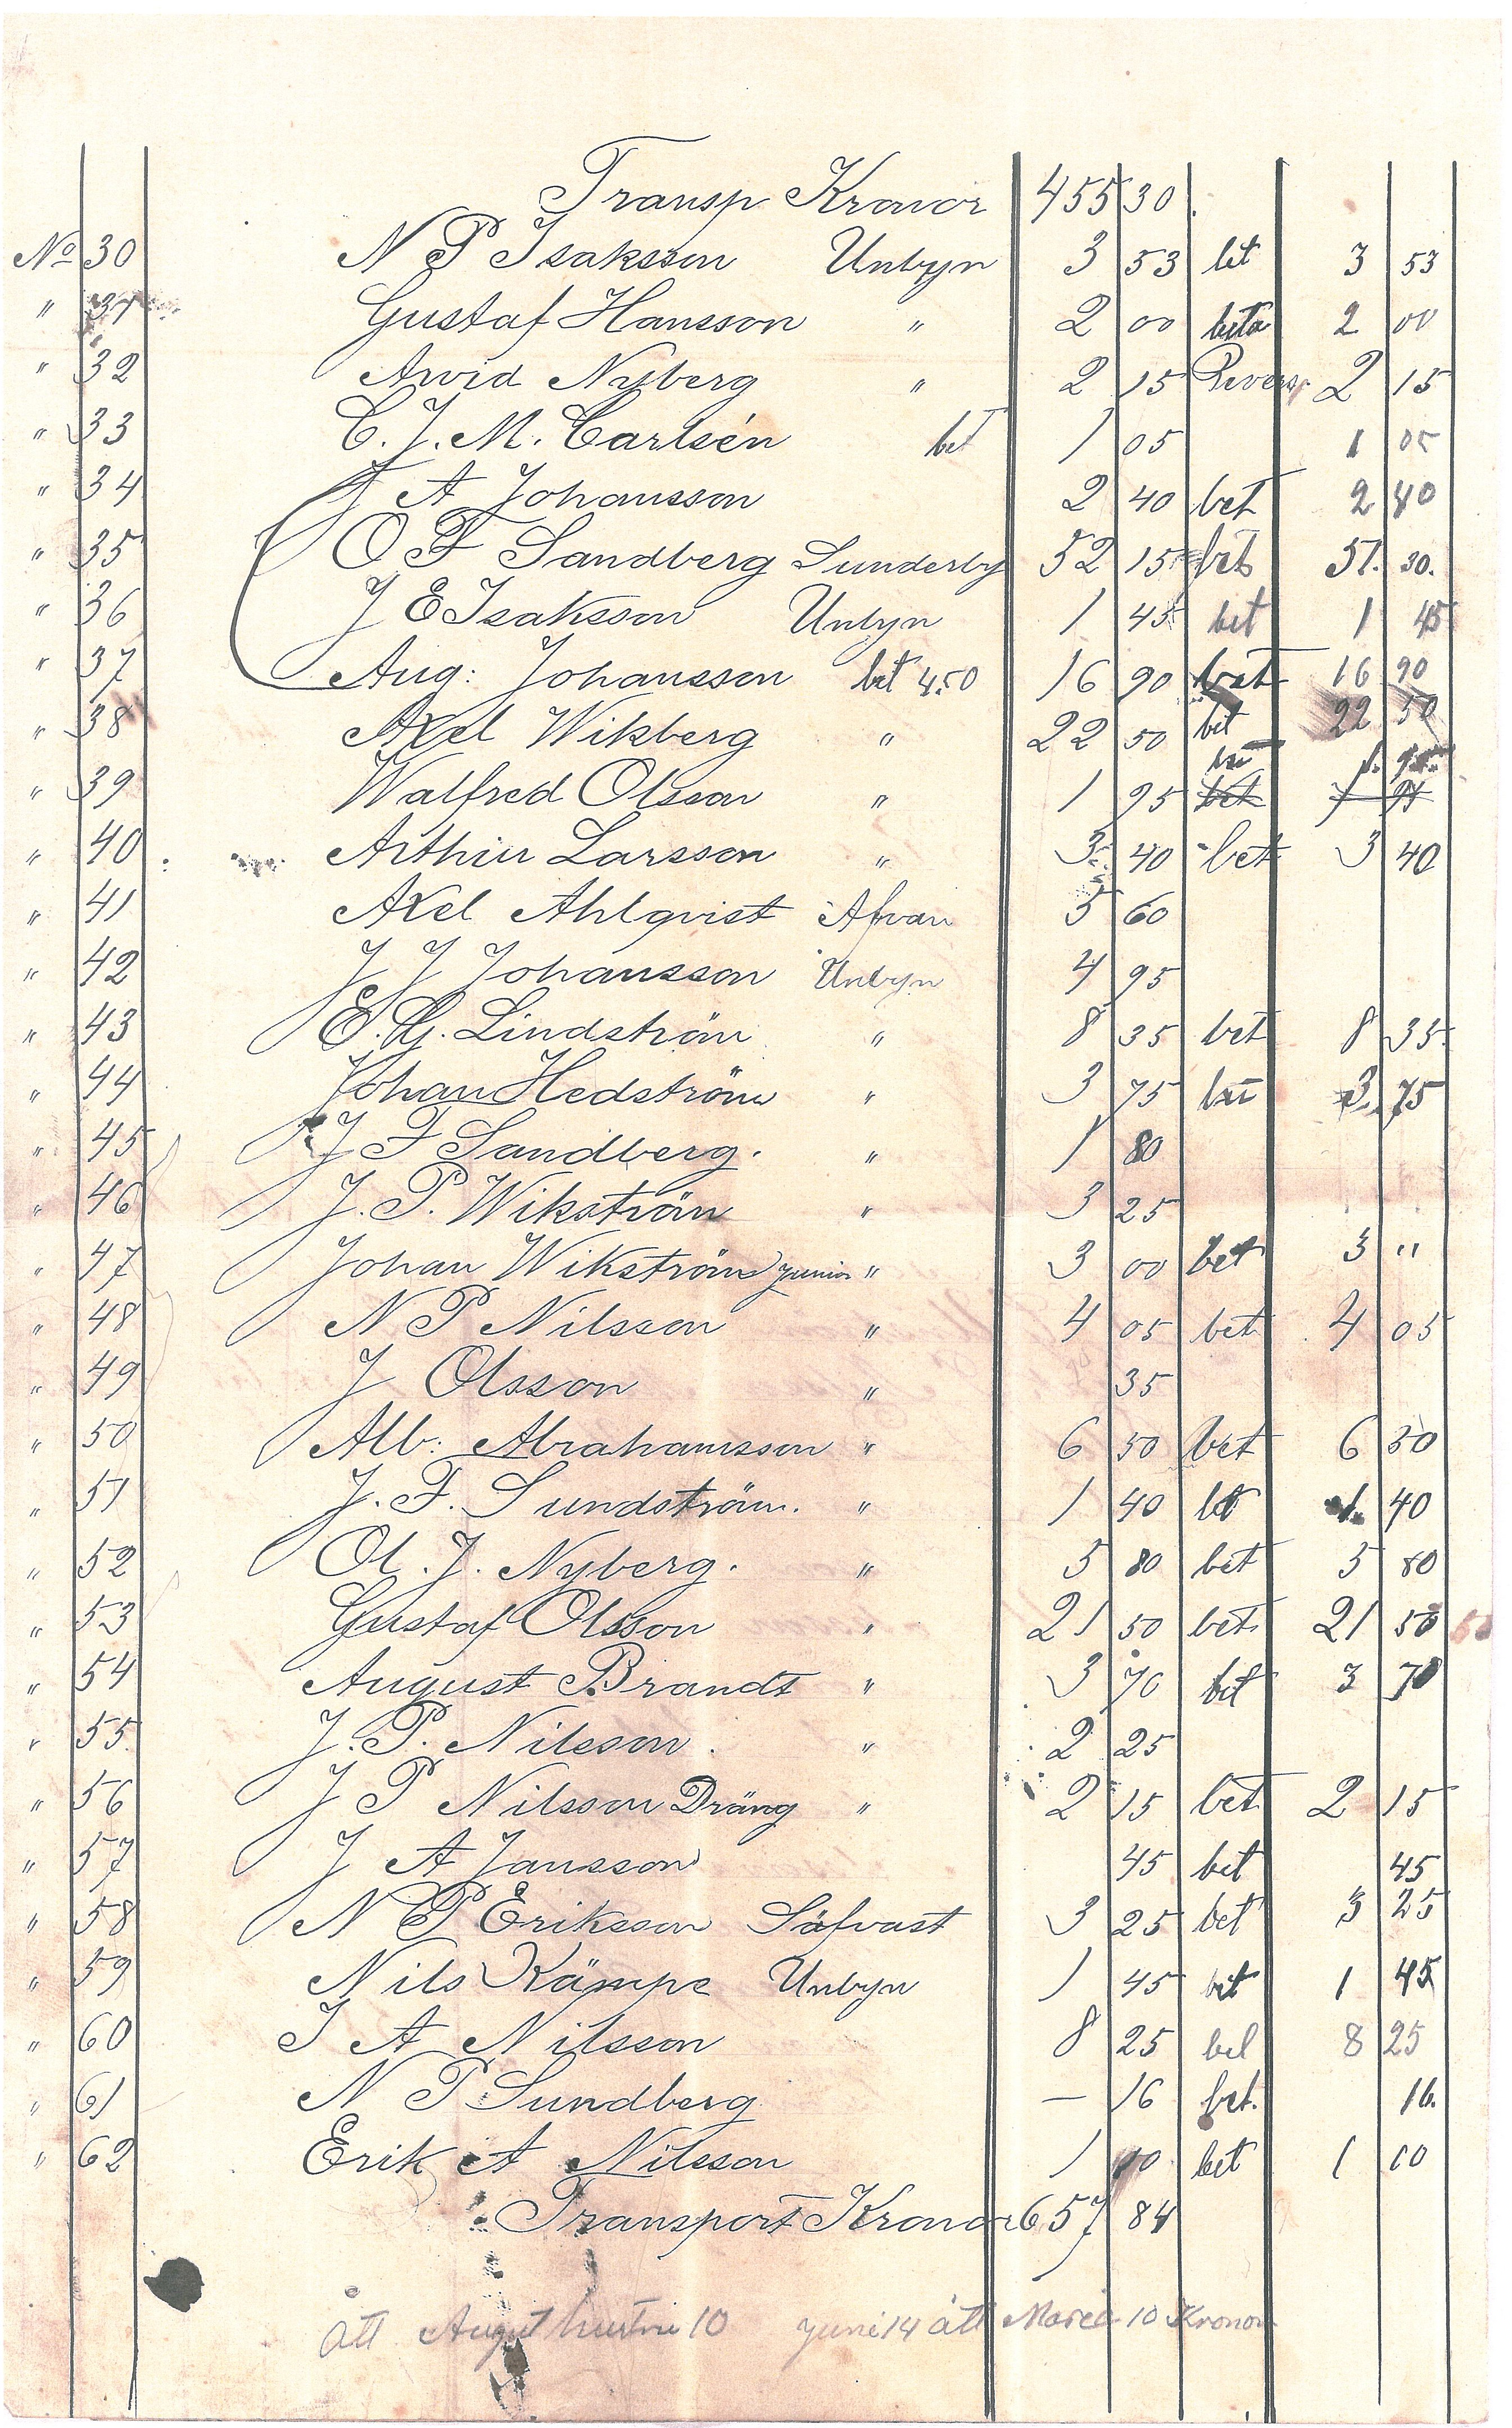 Transp Kronor 455 30
No 30 N P Isaksson Unbyn 3 53 bet 3 53
" 31 Gustaf Hansson " 2 00 beta 2 00
" 32 Arvid Nyberg " 2 15 Revers 2 15
" 33 C. J. M. Carlsén bet 1 05 1 05
" 34 J A Johansson 2 40 bet 2 40
" 35 O F Sandberg Sunderby 52 15 bet 51. 30.
" 36 J E Isaksson Unbyn 1 45 bet 1 45
" 37 Aug: Johansson bet 4.50 16 90 bet 16 90
" 38 Axel Wikberg " 22 50 bet 22 50
bet 1. 95.
" 39 Walfred Olsson " 1 95 bet
" 40 Arthur Larsson " 3 40 bet 3 40
" 41 Axel Ahlqvist Afvan 5 60
" 42 J J Johansson Unbyn 4 95
" 43 E. G. Lindström " 8 35 bet 8 35
" 44 Johan Hedström " 3 75 bet 3. 75
" 45 J F Sandberg. " 1 80
" 46 J. P. Wikström " 3 25
" 47 Johan Wikström junior " 3 00 bet 3 "
" 48 N P Nilsson " 4 05 bet 4 05
" 49 J Olsson " 35
" 50 Alb: Abrahamsson " 6 50 bet 6 50
" 51 J. F. Sundström. " 1 40 bet 1. 40
" 52 Ol. J. Nyberg. " 5 80 bet 5 80
" 53 Gustaf Olsson " 21 50 bet. 21 50
" 54 August Brandt " 3 70 bet 3 70
" 55 J. P. Nilsson. " 2 25
" 56 J P Nilsson Dräng " 2 15 bet 2 15
" 57 J A Jansson 45 bet 45
" 58 N P Eriksson Säfvast 3 25 bet 3 25
" 59 Nils Kämpe Unbyn 1 45 bet 1 45
" 60 J A Nilsson 8 25 bet 8 25
" 61 N P Sundberg — 16 bet. 16.
" 62 Erik A Nilsson 1 10 bet 1 10
Transport Kronor 657 84
ått August hustru 10 juni 14 ått 10 Kronor